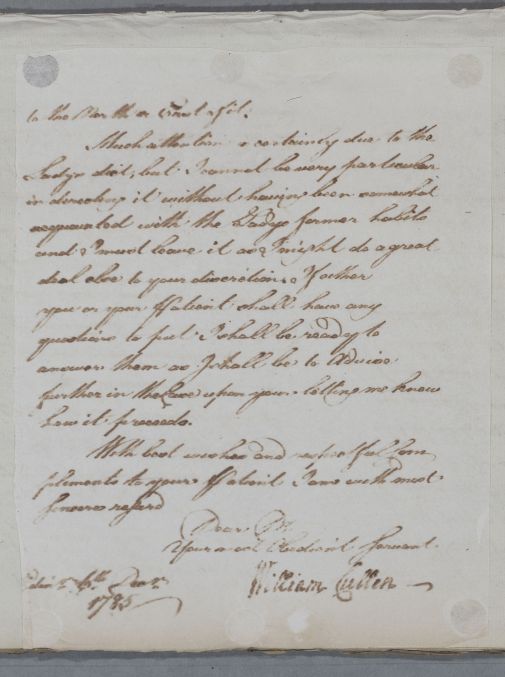 to the North or East of it.
Much attention is certainly due to the
Ladys diet, but I cannot be very particular
in directing it without having been somewhat
acquainted with the Ladys former habits
and I must leave it as I might do a great
deal else to your discretion. If either
you or your Patient shall have any
questions to put I shall be ready to
answer them as I shall be to Advise
further in the Case upon your letting me know
how it proceeds.
With best wishes and respectfull Com
pliments to your Patient I am with most
sincere regard
Dear Sir
Your most Obedient Servant
William Cullen
Edinr 6th
1785